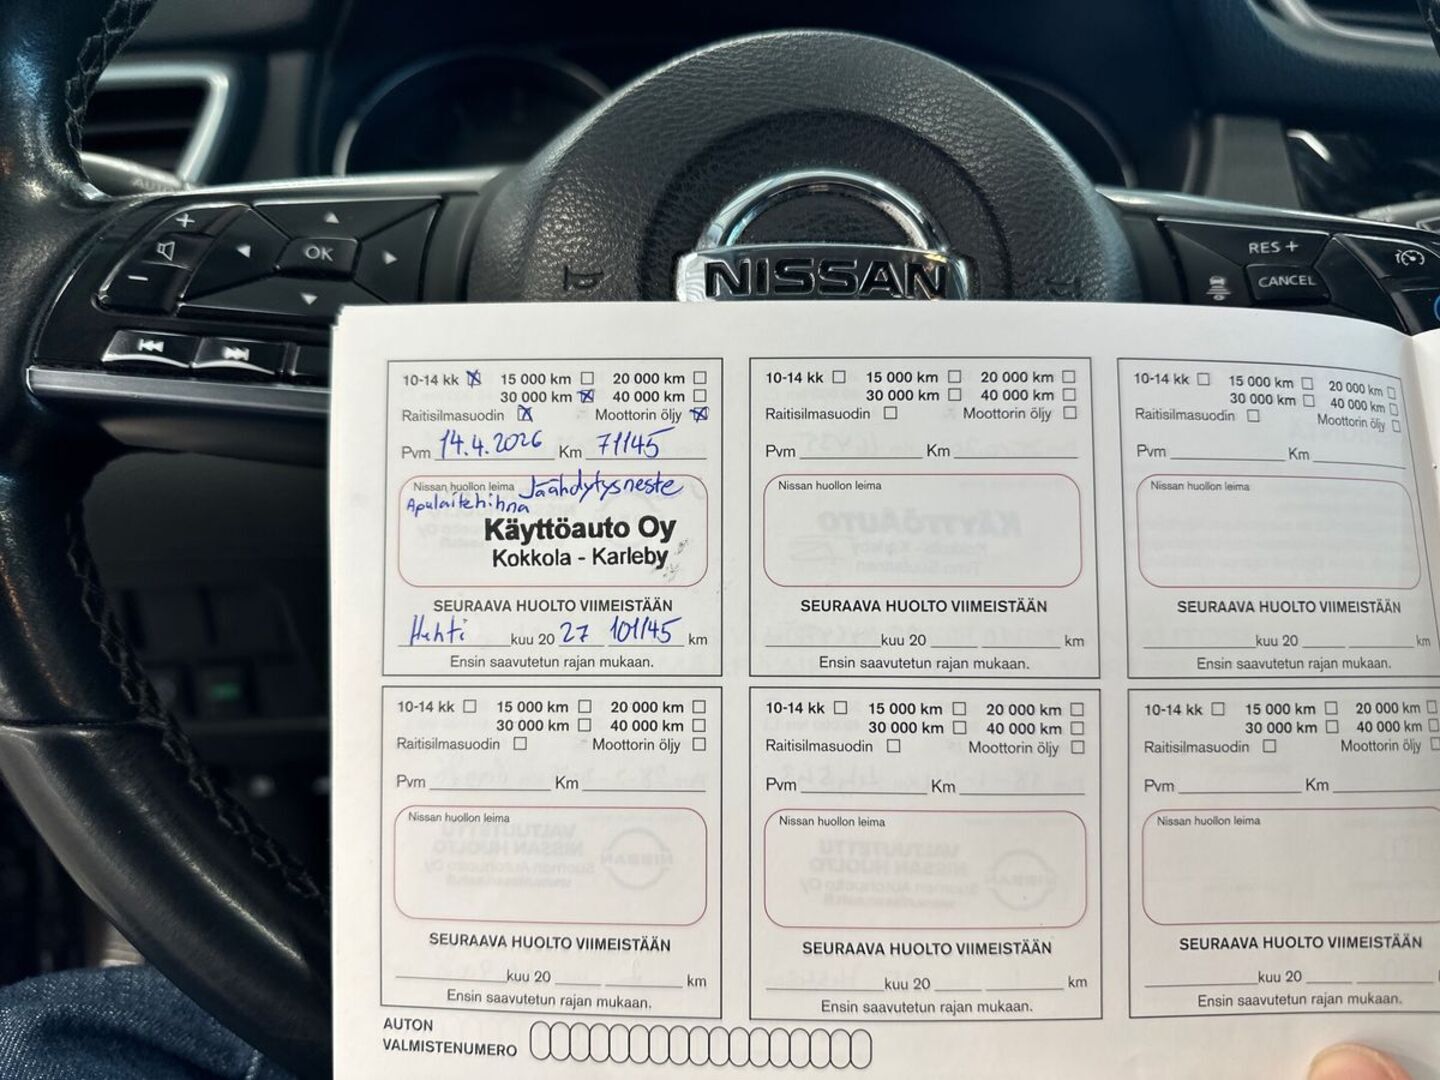 AUTO
+
−
OK
NISSAN
RES +
CANCEL
10-14 kk ☒ 15 000 km ☐ 20 000 km ☐
30 000 km ☒ 40 000 km ☐
Raitisilmasuodin ☒ Moottorin öljy ☒
Pvm 14.4.2026 Km 71145
Nissan huollon leima Jäähdytysneste
Apulaitehihna
Käyttöauto Oy
Kokkola - Karleby
SEURAAVA HUOLTO VIIMEISTÄÄN
Huhti kuu 20 27 101145 km
Ensin saavutetun rajan mukaan.
10-14 kk ☐ 15 000 km ☐ 20 000 km ☐
30 000 km ☐ 40 000 km ☐
Raitisilmasuodin ☐ Moottorin öljy ☐
Pvm Km
Nissan huollon leima
SEURAAVA HUOLTO VIIMEISTÄÄN
kuu 20 km
Ensin saavutetun rajan mukaan.
10-14 kk ☐ 15 000 km ☐ 20 000 km ☐
30 000 km ☐ 40 000 km ☐
Raitisilmasuodin ☐ Moottorin öljy ☐
Pvm Km
Nissan huollon leima
SEURAAVA HUOLTO VIIMEISTÄÄN
kuu 20 km
Ensin saavutetun rajan mukaan.
10-14 kk ☐ 15 000 km ☐ 20 000 km ☐
30 000 km ☐ 40 000 km ☐
Raitisilmasuodin ☐ Moottorin öljy ☐
Pvm Km
Nissan huollon leima
SEURAAVA HUOLTO VIIMEISTÄÄN
kuu 20 km
Ensin saavutetun rajan mukaan.
10-14 kk ☐ 15 000 km ☐ 20 000 km ☐
30 000 km ☐ 40 000 km ☐
Raitisilmasuodin ☐ Moottorin öljy ☐
Pvm Km
Nissan huollon leima
SEURAAVA HUOLTO VIIMEISTÄÄN
kuu 20 km
Ensin saavutetun rajan mukaan.
10-14 kk ☐ 15 000 km ☐ 20 000 km ☐
30 000 km ☐ 40 000 km ☐
Raitisilmasuodin ☐ Moottorin öljy ☐
Pvm Km
Nissan huollon leima
SEURAAVA HUOLTO VIIMEISTÄÄN
kuu 20
Ensin saavutetun rajan mukaan.
AUTON
VALMISTENUMERO